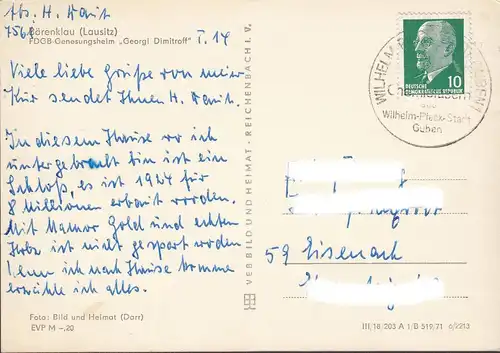 Abs. H. Kanit
7561
Bärenklau (Lausitz)
FDGB-Genesungsheim „Georgi Dimitroff"
T. 14
Viele liebe Grüße von meier
Kur sendet Ihnen H. Kanit.
In diesem Hause wo ich
untergebracht bin ist ein
Schloß, es ist 1924 für
8 Millionen erbaut worden.
Mit Mamor Gold und echten
Holz ist nicht gespart worden
Wenn ich nach Hause komme
erzähle ich alles.
Foto: Bild und Heimat (Darr)
EVP M –,20
VEB BILD UND HEIMAT · REICHENBACH I. V.
DEUTSCHE
DEMOKRATISCHE REPUBLIK
10
WILHELM
Wilhelm-Pieck-Stadt
Guben
59 Eisenach
III/18/203 A 1/B 519/71 6/2213